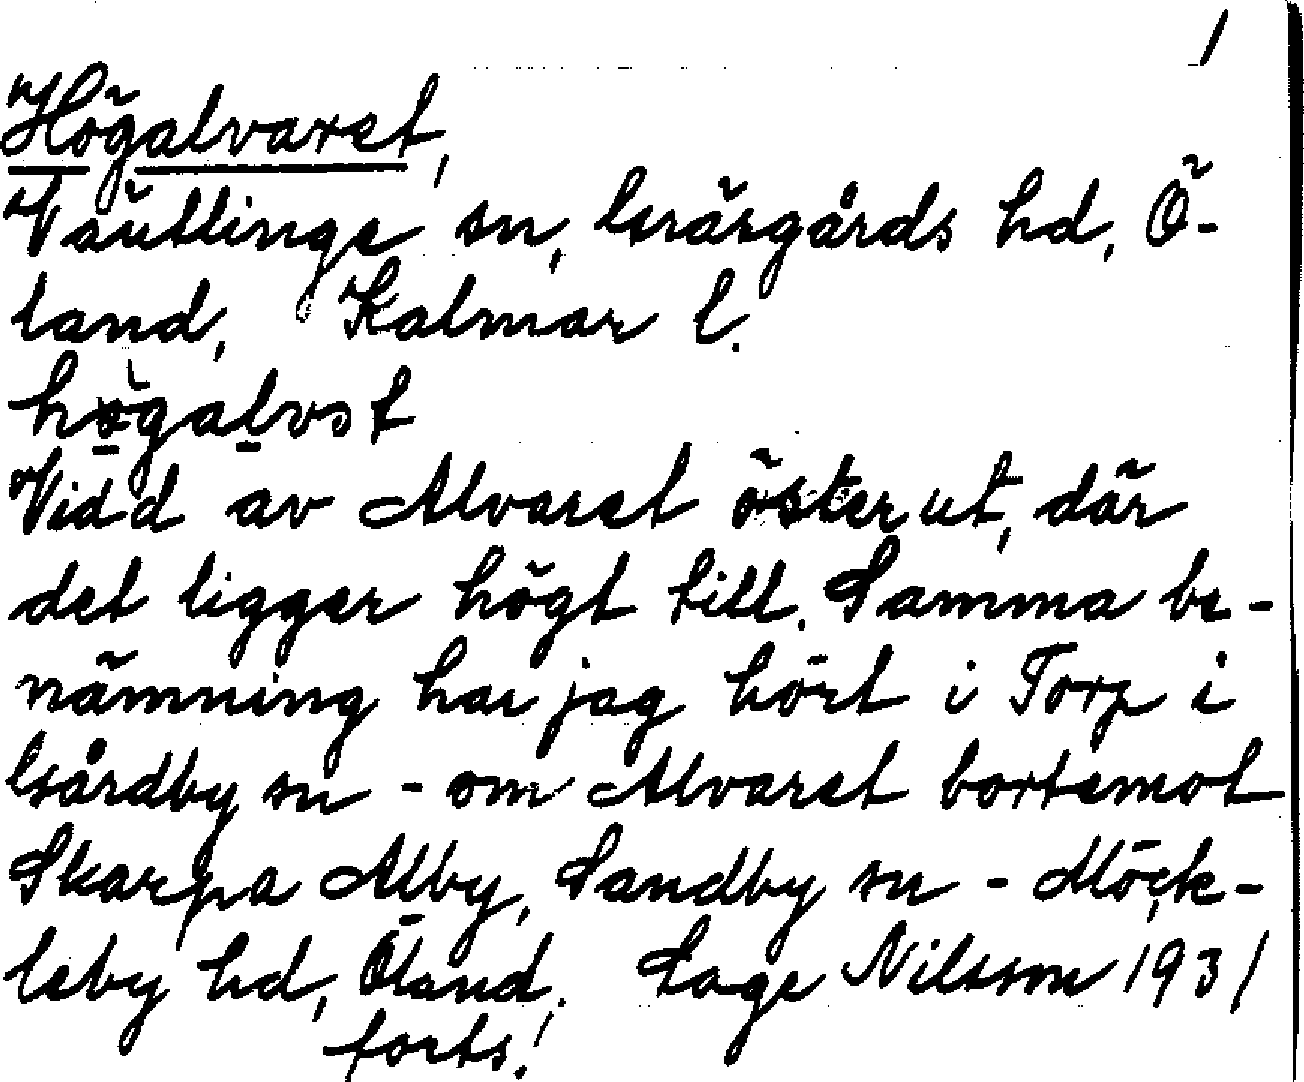 1
Högalvaret,
Ventlinge sn, Gräsgårds hd, Ö-
land, Kalmar l.
högalvət
Vidd av Alvaret österut, där
det ligger högt till. Samma be-
nämning har jag hört i Torp i
Gårdby sn - om Alvaret bortemot
Skarpa Alby, Sandby sn - Möck-
leby hd, Öland. Sage Nilsson 1931
forts!